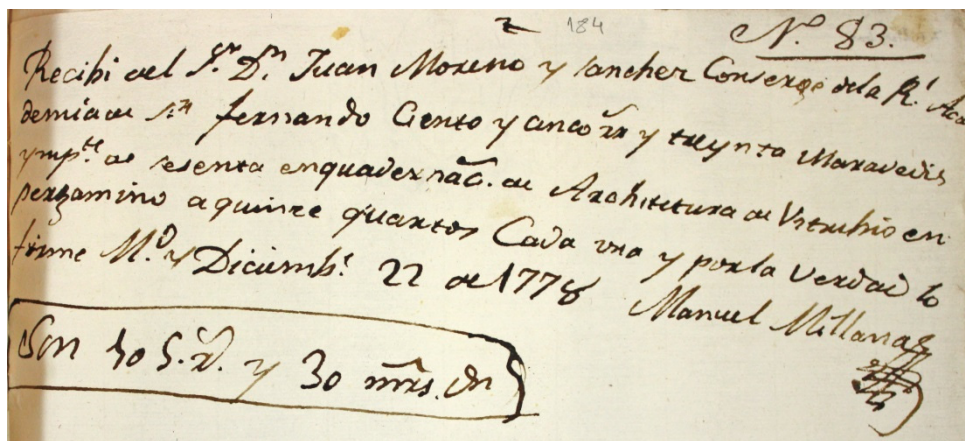 2 184 Nº 83.
Recibi del Sr. Dn. Juan Moreno y Sancher Conserge dela Rl. Aca
demia de Sn. fernando Ciento y cinco rs. y treynta Maravedis
ymp.te de sesenta enquadernac. de Architetura de Vitrubio en
pergamino a quince quartos Cada una y por la Verdad lo
firme M.d y Diciemb.e 22 de 1778
Manuel Millana
Son 105 r. y 30 mrs. vn